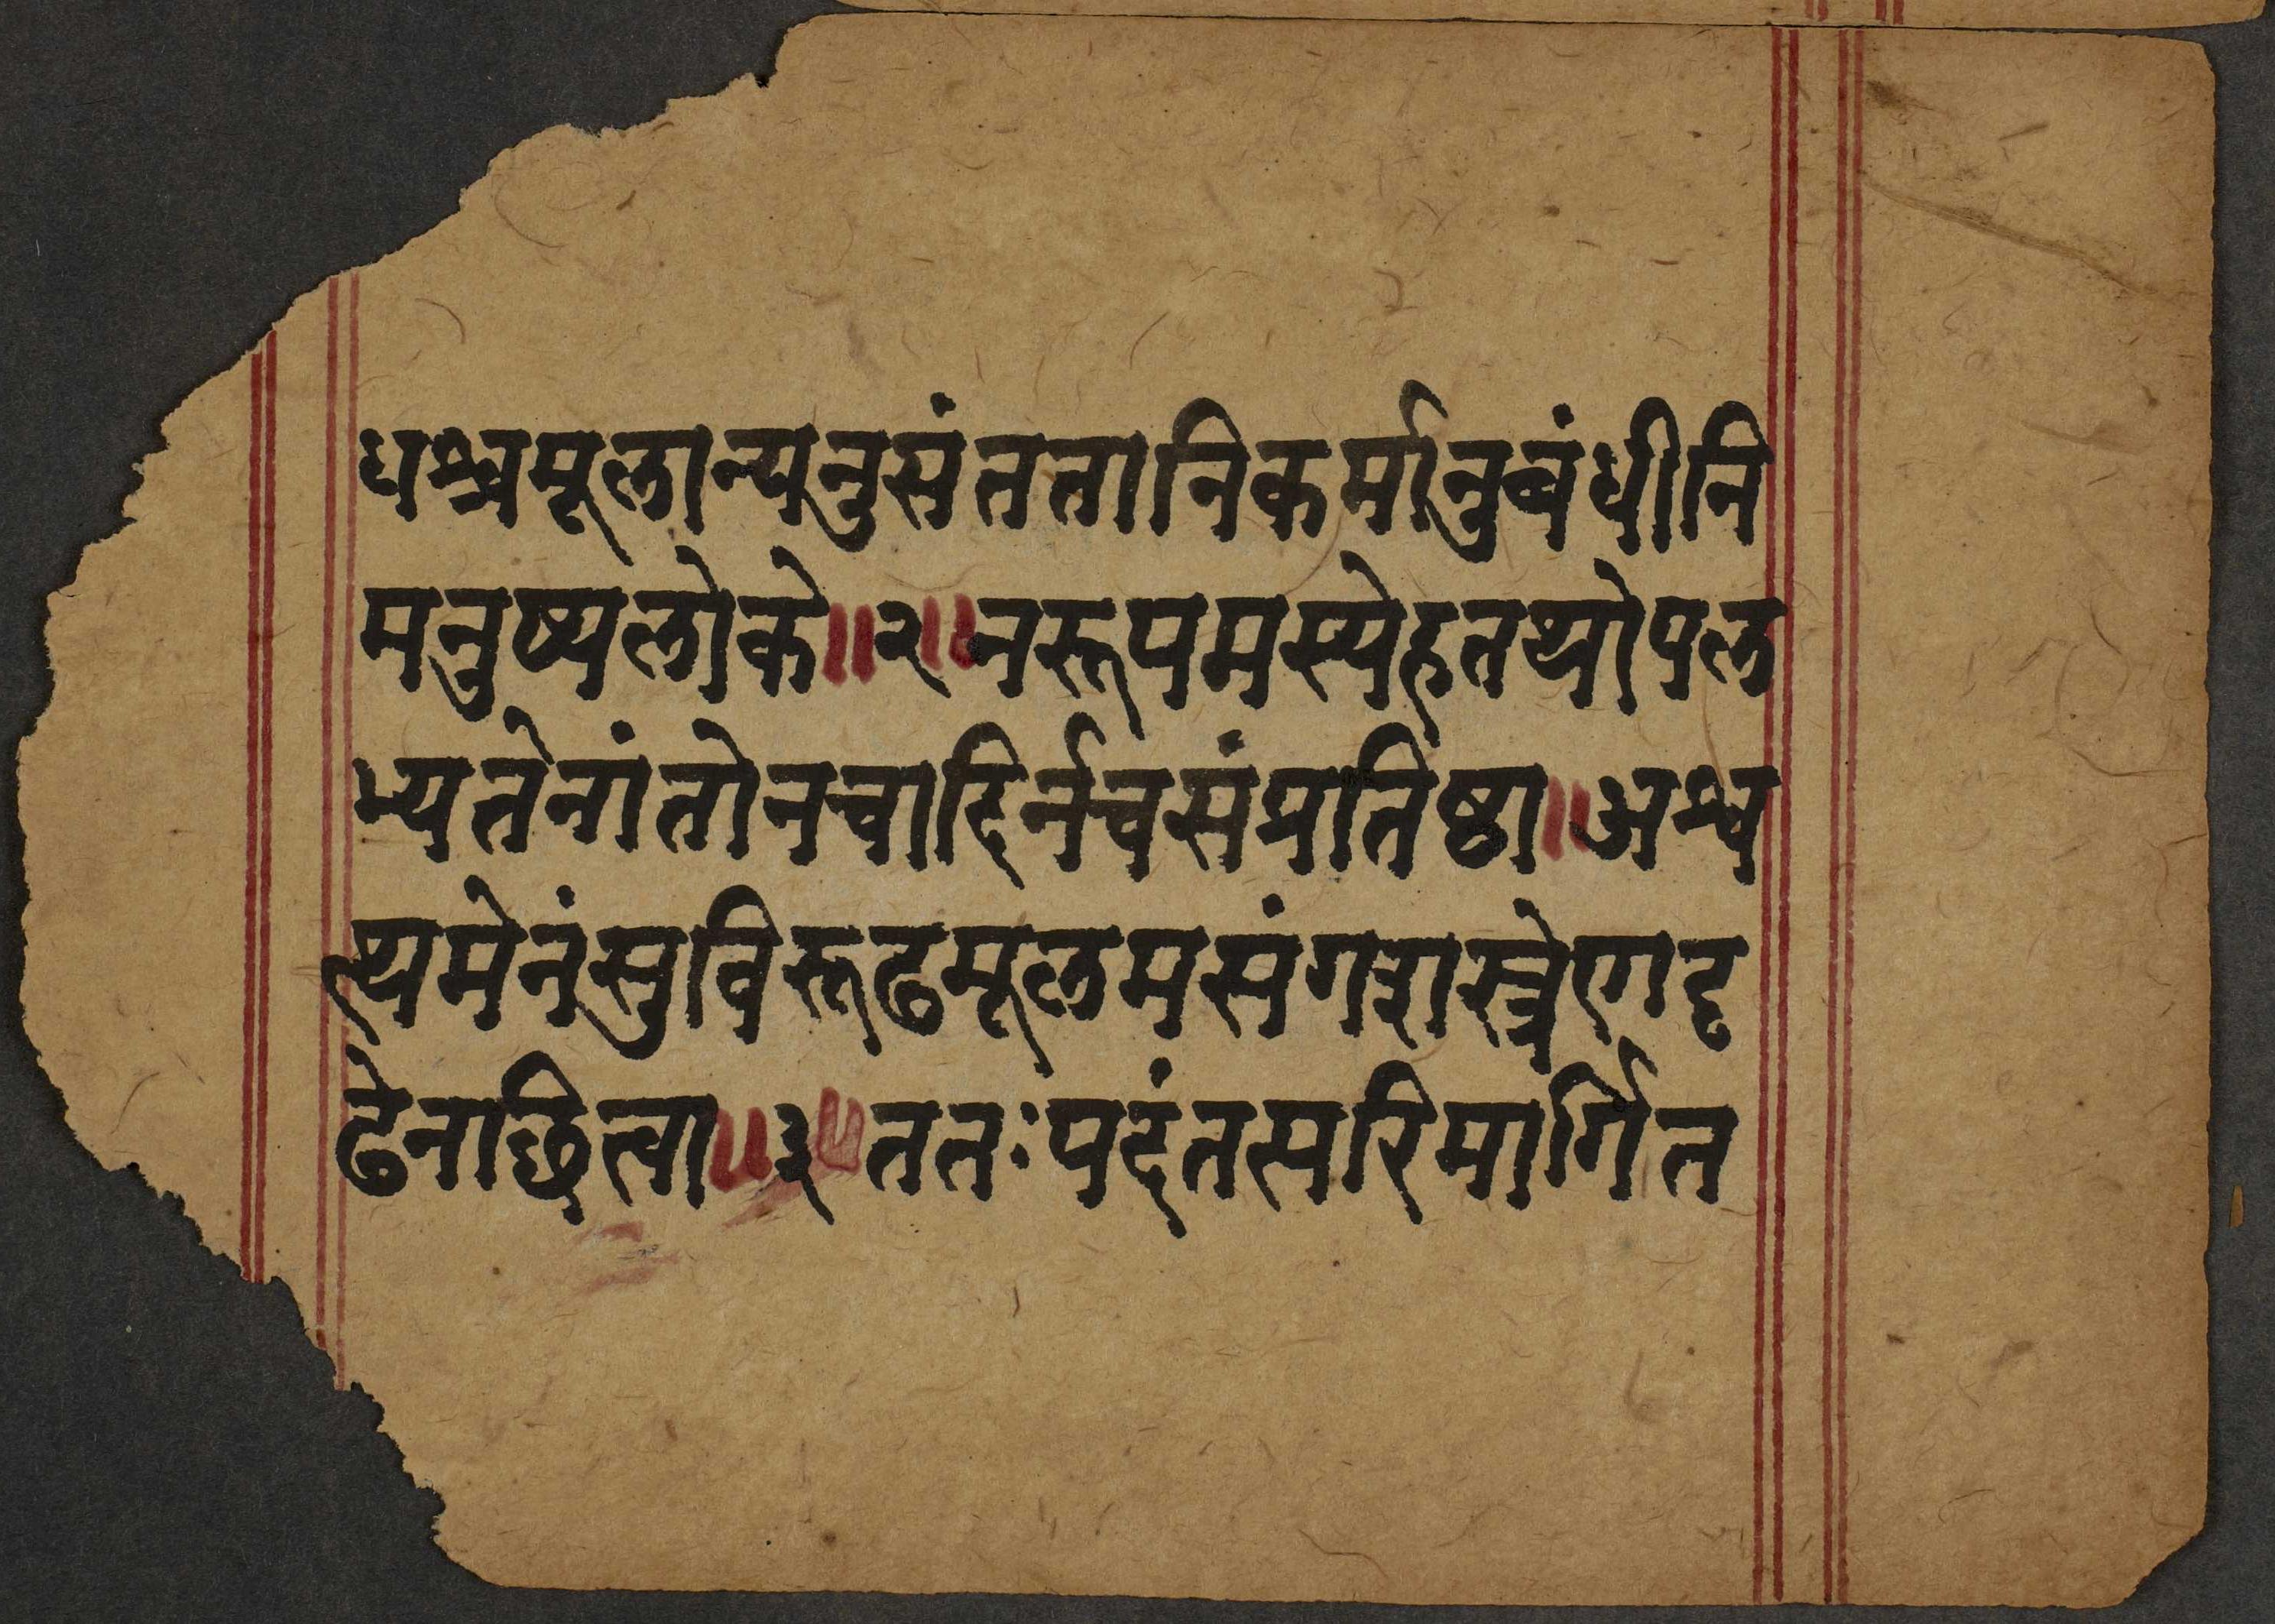 धश्चमूलान्यनुसंततानिकर्मानुबंधीनि
मनुष्यलोके॥२॥नरूपमस्येहतथोपल
भ्यतेनांतोनचादिर्नचसंप्रतिष्ठा॥अश्व
त्थमेनंसुविरूढमूलमसंगशस्त्रेणदृ
ढेनछित्वा॥३॥ततःपदंतत्परिमार्गित